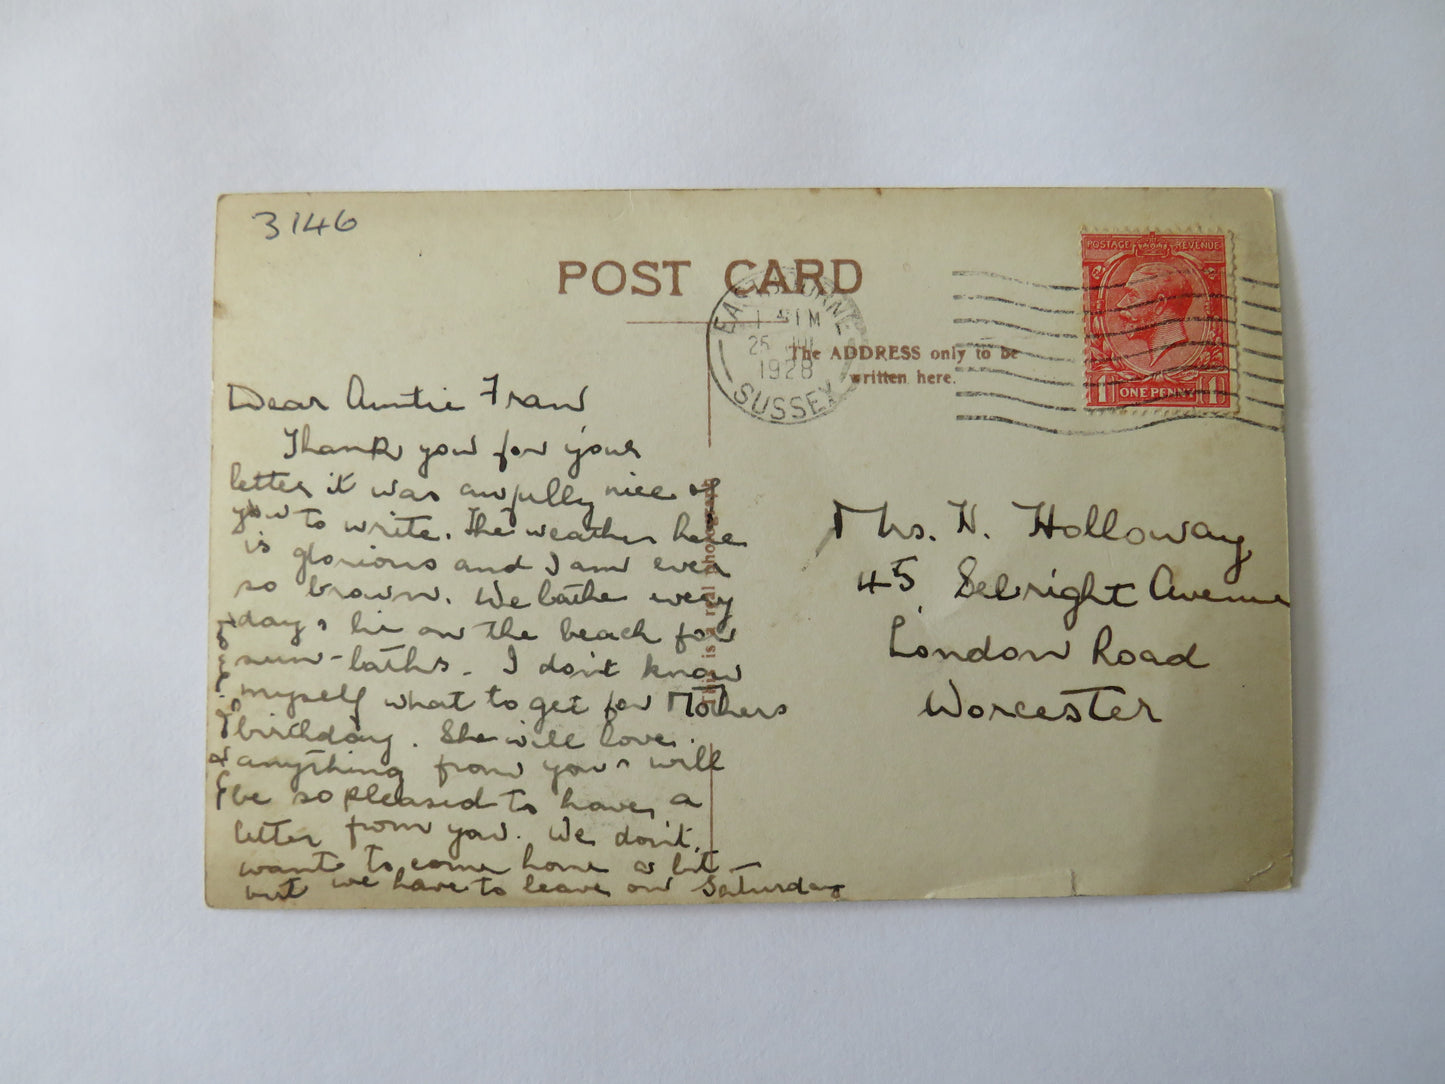 3146
POST CARD
POSTAGE REVENUE
EASTBOURNE
1928
SUSSEX
1 ONE PENNY 1
The ADDRESS only to be
written here.
Dear Auntie Fran
Thank you for your
letter it was awfully nice of
you to write. The weather here
is glorious and I am ever
so brown. We bathe every
day & lie on the beach for
sun-baths. I don't know
myself what to get for Mothers
birthday. She will love
anything from you & will
be so pleased to have a
letter from you. We don't
want to come home a bit
but we have to leave on Saturday
This is a real photograph
Mrs. H. Holloway
45 Sebright Avenue
London Road
Worcester